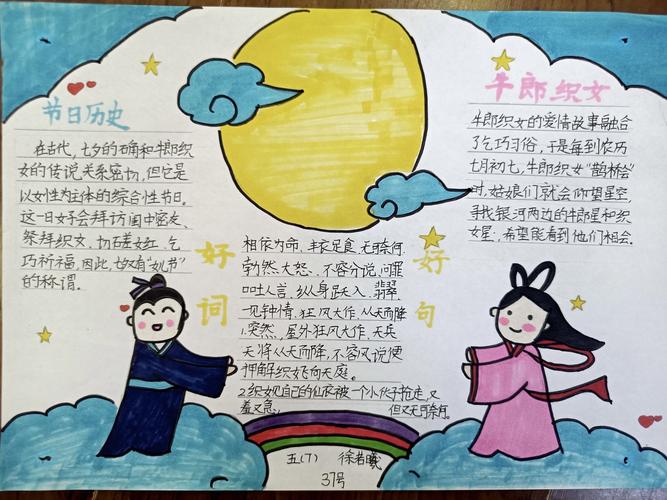 节日历史
在古代，七夕的确和牛郎织
女的传说关系密切，但它是
以女性为主体的综合性节日。
这一日女子会拜访闺中密友、
祭拜织女、切磋女红、乞
巧祈福，因此，七夕有“女儿节”
的称谓。
好词
好句
相依为命、丰衣足食、无可奈何、
勃然大怒、不容分说、问罪
口吐人言、纵身跃入、翡翠、
一见钟情、狂风大作、从天而降
1.突然，屋外狂风大作，天兵
天将从天而降，不容分说便
押解织女飞向天庭。
2.织女见自己的仙衣被一个小伙子抢走，又
羞又急， 但又无可奈何。
牛郎织女
牛郎织女的爱情故事融合
了乞巧习俗，于是每到农历
七月初七，牛郎织女“鹊桥会”
时，姑娘们就会仰望星空，
寻找银河两边的牛郎星和织
女星，希望能看到他们相会。
五(7) 徐若曦
37号